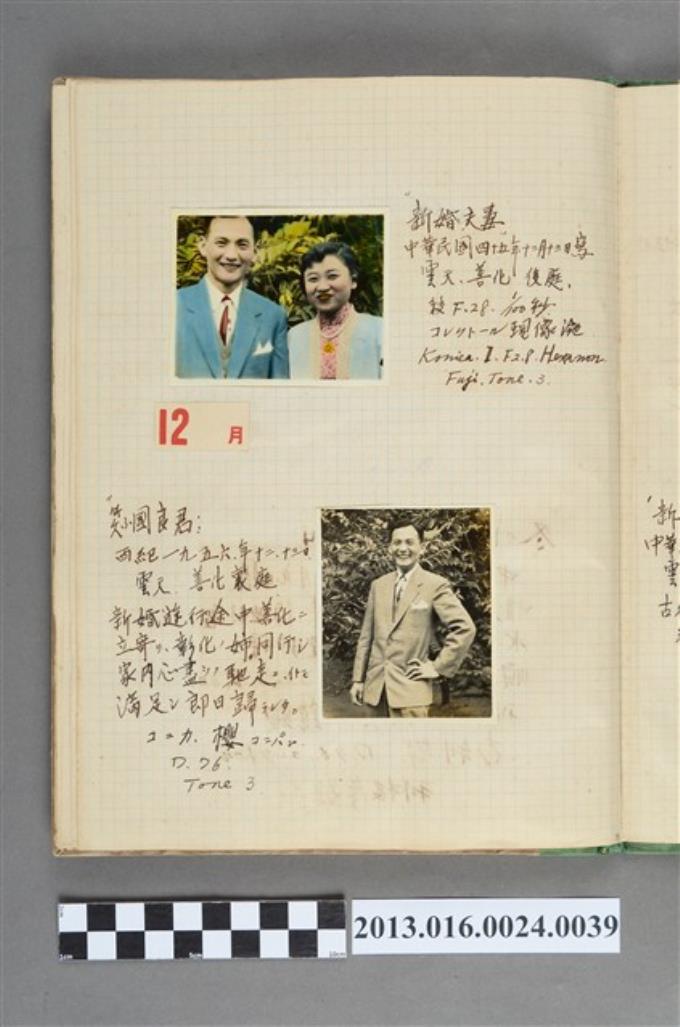 "新婚夫妻"
中華民國四十五年十二月十二日寫
雲天、善化後庭、
F.28. 1/100秒
現像液
Konica. I. F2.8. Hexanon
Fuji. Tone. 3.
12 月
國良君:
西紀一九五六.年十二.十二日
雲天、善化家庭
新婚遊行途中善化ニ
立寄リ、彰化ノ姉同行シ
家内心盡シノ馳走。
満足シ即日歸
コニカ. 櫻 コニパン
D.76
Tone 3
"新
中華
雲
古
2013.016.0024.0039